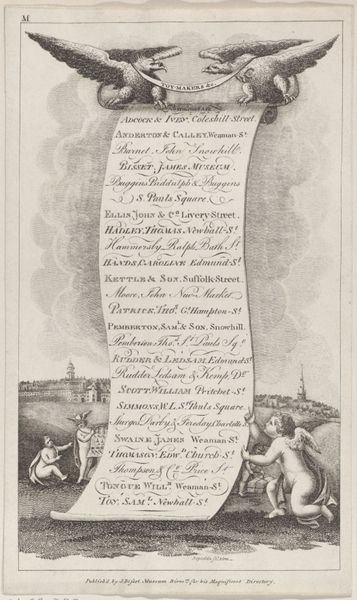 M
TOY-MAKERS &c.
ADCOCK & IVEN, Coleshill-Street.
ANDERTON & CALLEY, Weaman-St
Barnet, John Snowhill.
BISSET, JAMES MUSEUM.
Buggens Biddulph & Buggens
S. Pauls Square.
ELLIS, JOHN & Co. Livery Street.
HADLEY, THOMAS, Newhall-St.
Hammersly, Ralph, Bath St.
HANDS, CAROLINE Edmund-St.
KETTLE & SON, Suffolk-Street.
Moore, John New Market.
PATRICK, Thos. Gt. Hampton-St.
PEMBERTON, SAML. & SON, Snowhill.
Pemberton Thos. St. Pauls Sq.
RUDDER & LEDSAM, Edmund St.
Rudder Ledsam & Kemp, Do.
SCOTT, WILLIAM Pritchet-St.
SIMMONS, W. L. St. Pauls Square.
Sturges, Darby & Fereday, Charlotte St
SWAINE JAMES Weaman-St.
THOMASON, EDWD. Church-St.
Thompson & Co. Price St.
TONGUE WILLM. Weaman-St.
TOY, SAML. Newhall-St.
Publish'd by J. Bisset, Museum Birmm. for his Magnificent Directory.